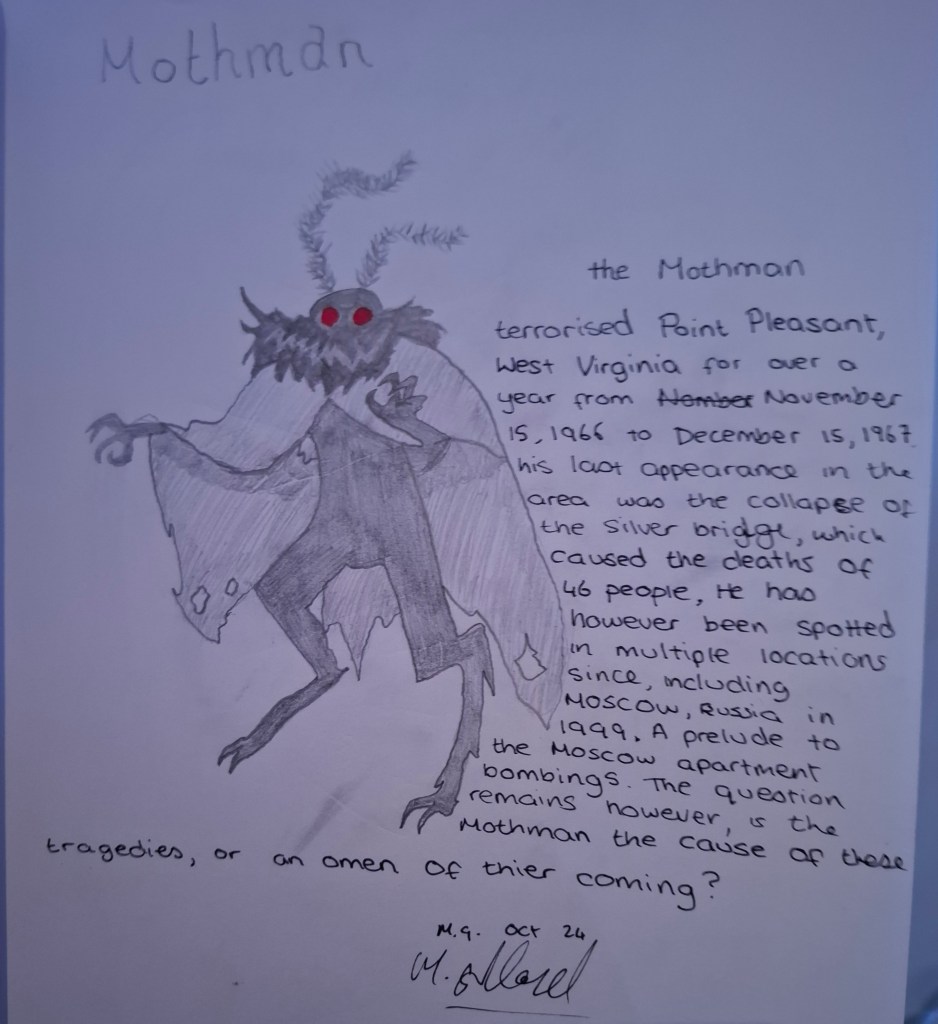 Mothman
the Mothman
terrorised Point Pleasant,
West Virginia for over a
year from November
15, 1966 to December 15, 1967.
his last appearance in the
area was the collapse of
the Silver bridge, which
caused the deaths of
46 people, He has
however been spotted
in multiple locations
since, including
Moscow, Russia in
1999. A prelude to
the Moscow apartment
bombings. The question
remains however, is the
Mothman the cause of these
tragedies, or an omen of thier coming?
M.G. Oct 24